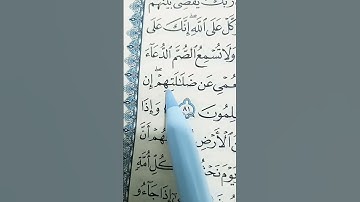 رَبَّكَ يَقْضِى بَيْنَهُم
كَّلْ عَلَى ٱللَّهِۖ إِنَّكَ عَلَى
وَلَا تُسْمِعُ ٱلصُّمَّ ٱلدُّعَآءَ
عُمْىِ عَن ضَلَٰلَتِهِمْۖ إِن
لِمُونَ ٨١ وَإِذَا
ٱلْأَرْضِ هُمْ أَنَّ
يَوْمَ نَحْ كُلِّ أُمَّةٍ
إِذَا جَآءُو